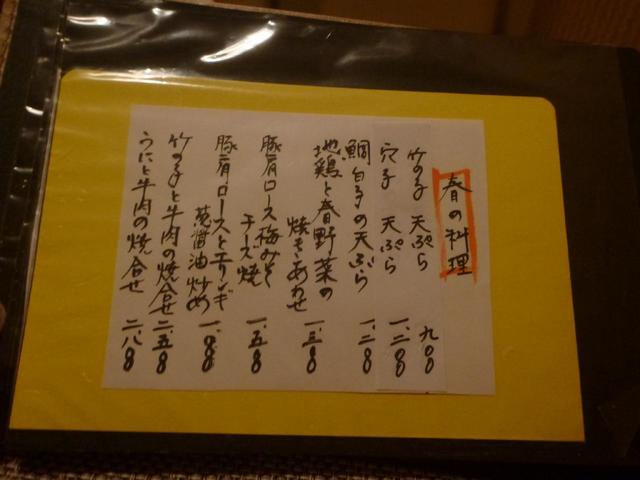 春の料理
竹の子 天ぷら 九〇〇
穴子 天ぷら 一、二〇〇
鯛白子の天ぷら 一、二〇〇
地鶏と春野菜の
焼きあわせ 一、三〇〇
豚肩ロース梅みそ
チーズ焼 一、五〇〇
豚肩ロースとエリンギ
葱醤油炒め
竹の子と牛肉の焼合せ 二、五〇〇
うにと牛肉の焼合せ 二、八〇〇